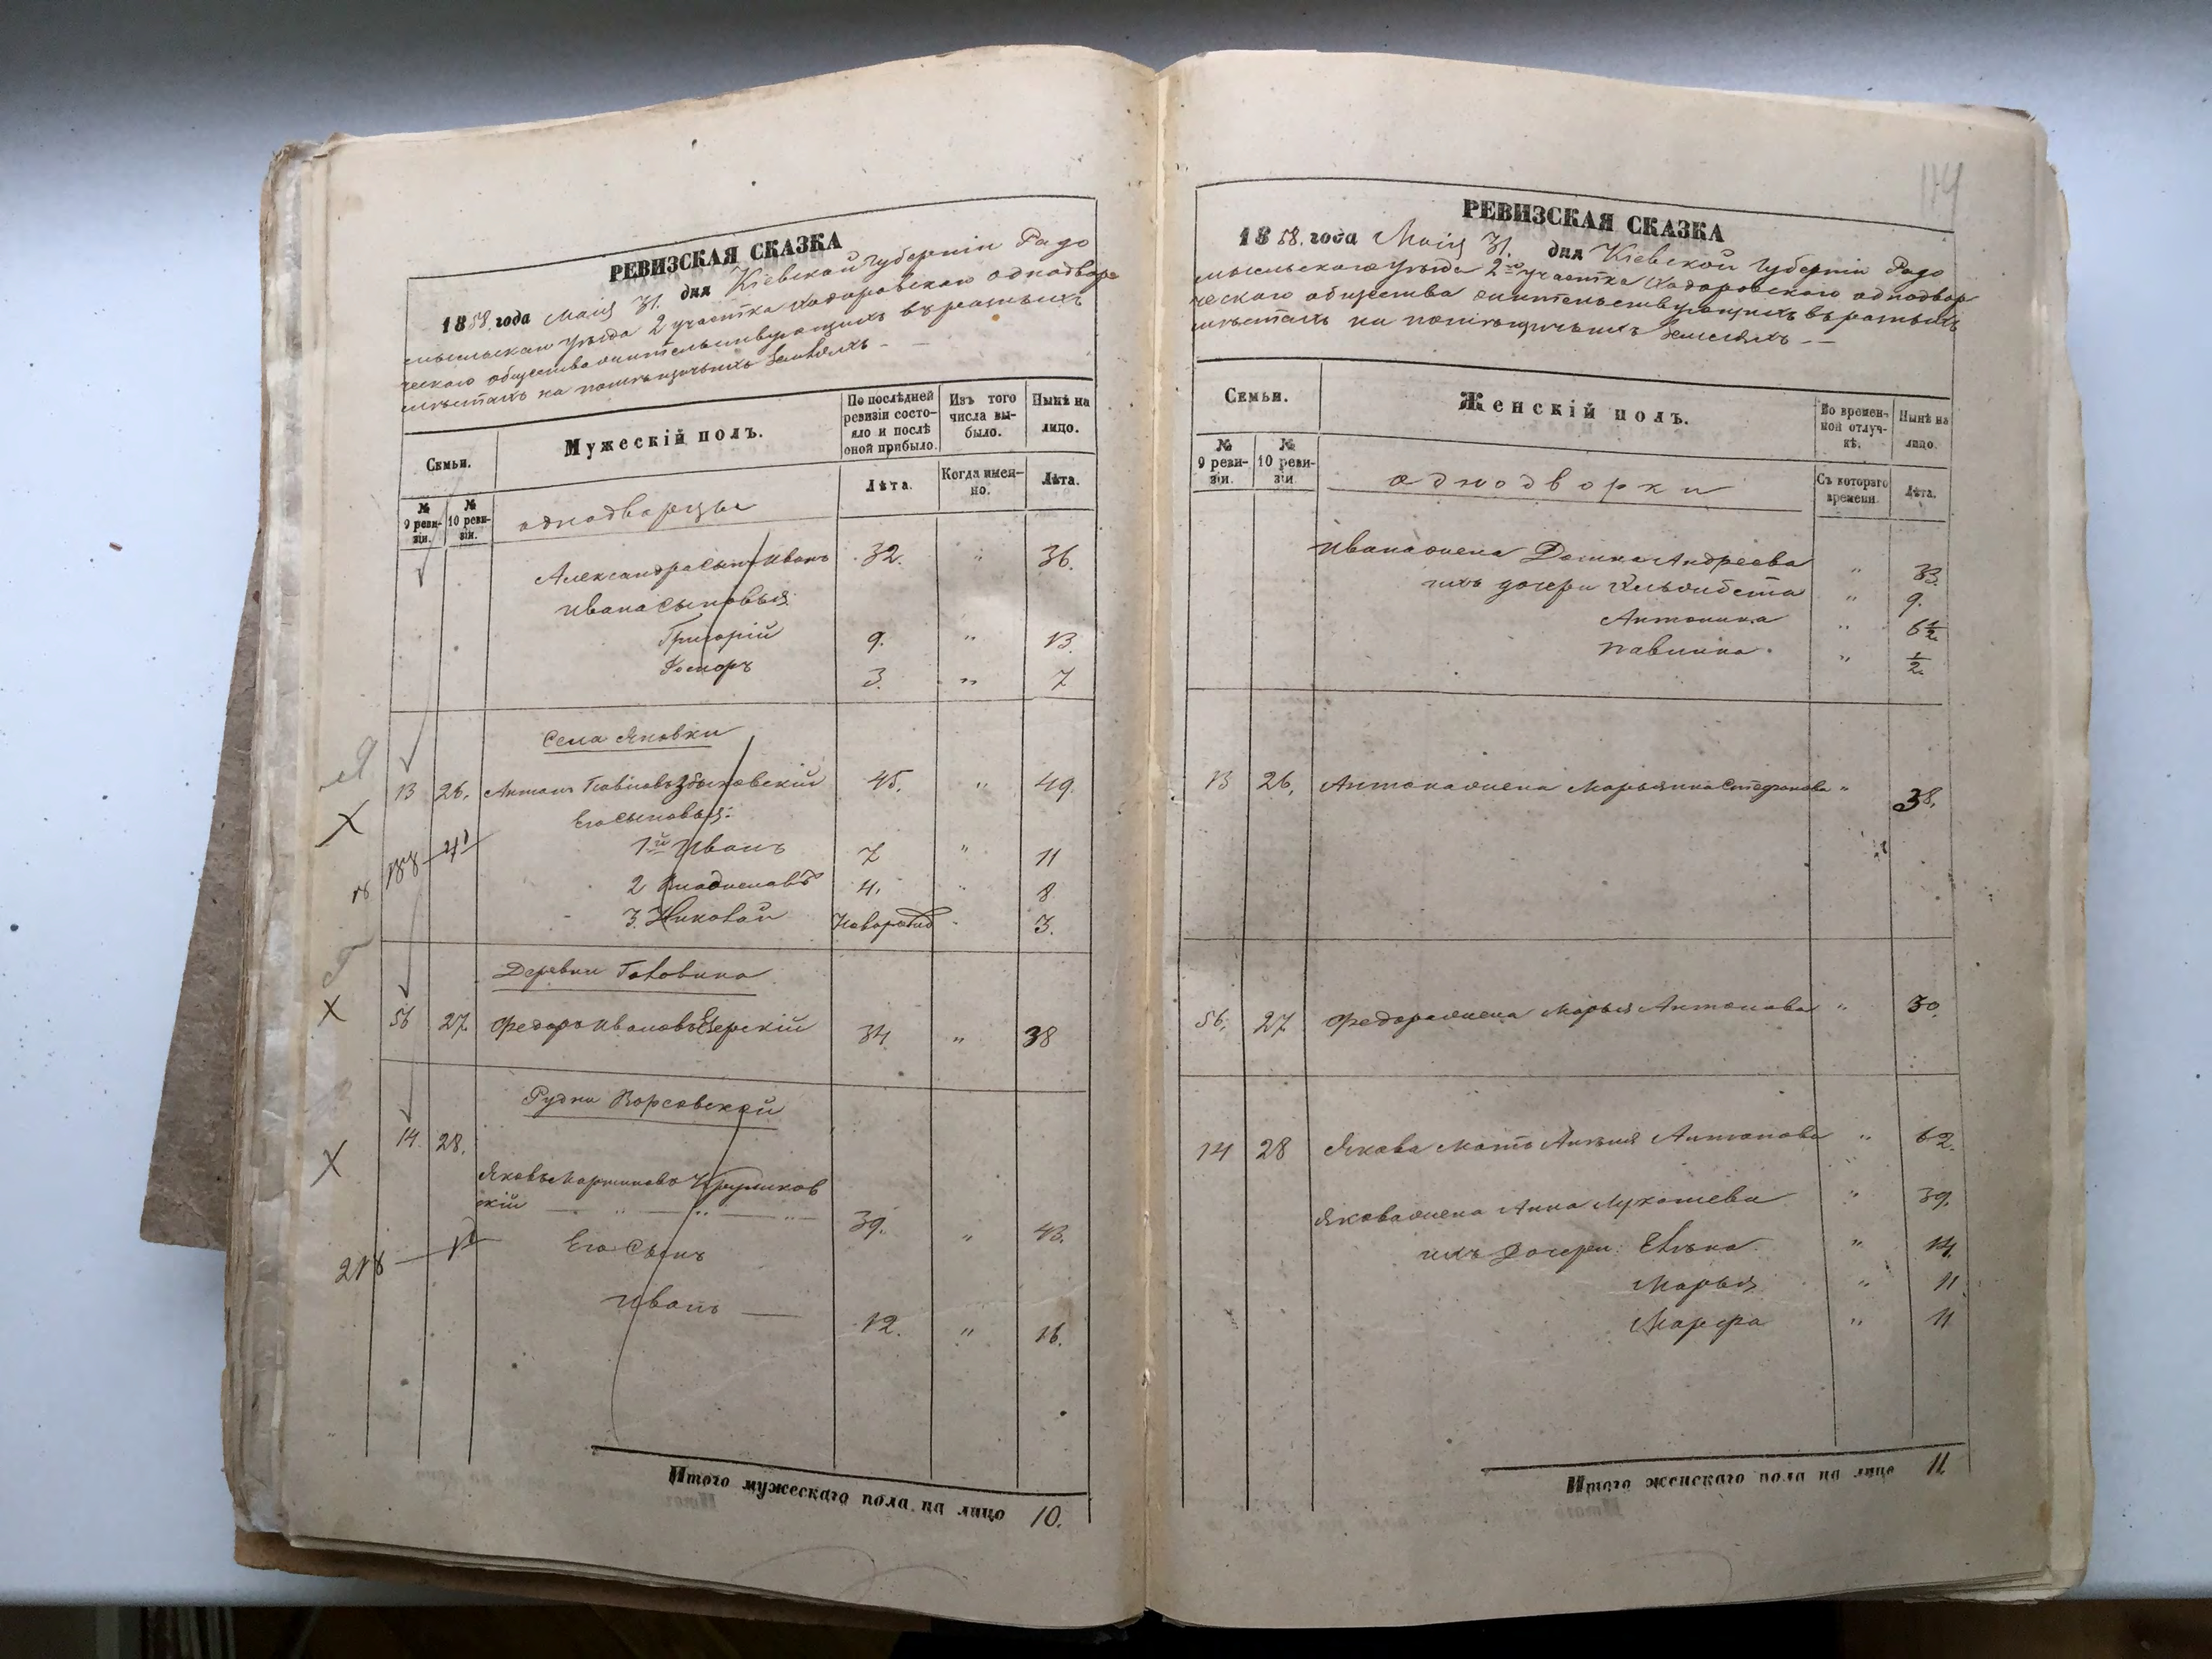 РЕВИЗСКАЯ СКАЗКА
1858. года Маія 31. дня Кіевской Губерніи Радо
мысльскаго уѣзда 2 участка Ходоровскаго однодвор
ческаго общества жительствующихъ въ разныхъ
мѣстахъ на помѣщичьихъ земляхъ
Семьи.
Мужескій полъ.
По послѣдней ревизіи состояло и послѣ оной прибыло.
Изъ того числа выбыло.
Нынѣ на лицо.
№ 9 ревизіи.
№ 10 ревизіи.
однодворцы
Лѣта.
Когда именно.
Лѣта.
Александра сынъ Иванъ 32. " 36.
Ивана сыновья:
Григорій 9. " 13.
3. " 7
Села Яновки
13 26. Антонъ 45. " 49.
Его сыновья:
1й Иванъ 7 " 11
2 Владиславъ 4. " 8
3. Николай Новорожд " 3.
Деревни Головина
56 27. Федоръ Ивановъ 34 " 38
Рудни Ворсовской
14. 28.
Яковъ Мартиновъ
скій 39. " 43.
Его сынъ
Иванъ 12. " 16.
218
Итого мужескаго пола на лицо 10.
114
РЕВИЗСКАЯ СКАЗКА
1858. года Маія 31. дня Кіевской Губерніи Радо
мысльскаго уѣзда 2го участка Ходоровскаго однодвор
ческаго общества жительствующихъ въ разныхъ
мѣстахъ на помѣщичьихъ земляхъ
Семьи.
Женскій полъ.
Во временной отлучкѣ.
Нынѣ на лицо.
№ 9 ревизіи.
№ 10 ревизіи.
однодворки
Съ котораго времени.
Лѣта.
Ивана жена Домка Андреева " 33.
ихъ дочери Ельжбета " 9.
Антонина " 6½
Павлина. " ½
13 26. Антона жена Марьяна Стефанова " 38.
56. 27 Федора жена Марья Антонова " 30.
14 28 Якова мать Антонова " 62.
Якова жена Анна Лукашева " 39.
ихъ дочери: " 14.
Марья " 11.
Марфа " 11
Итого женскаго пола на лицо 11.